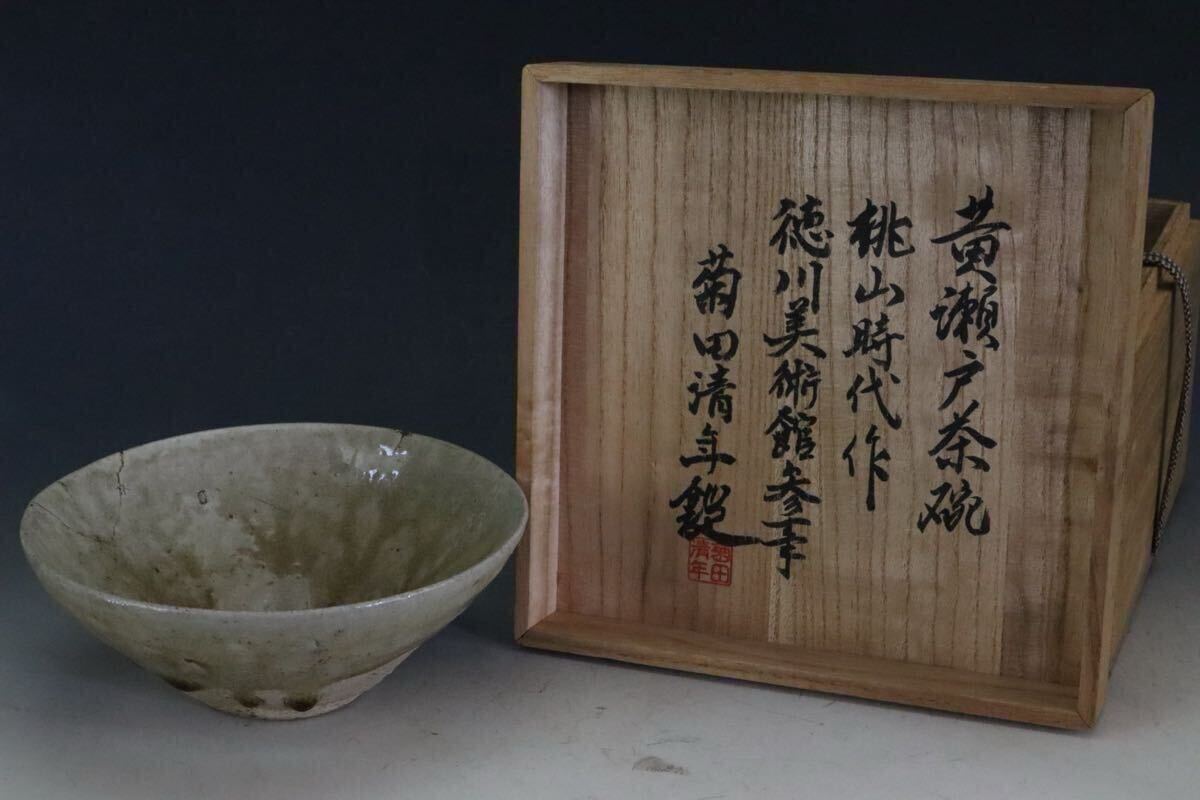 黄瀬戸茶碗
桃山時代作
徳川美術館参事
菊田清年鑑
菊田
清年